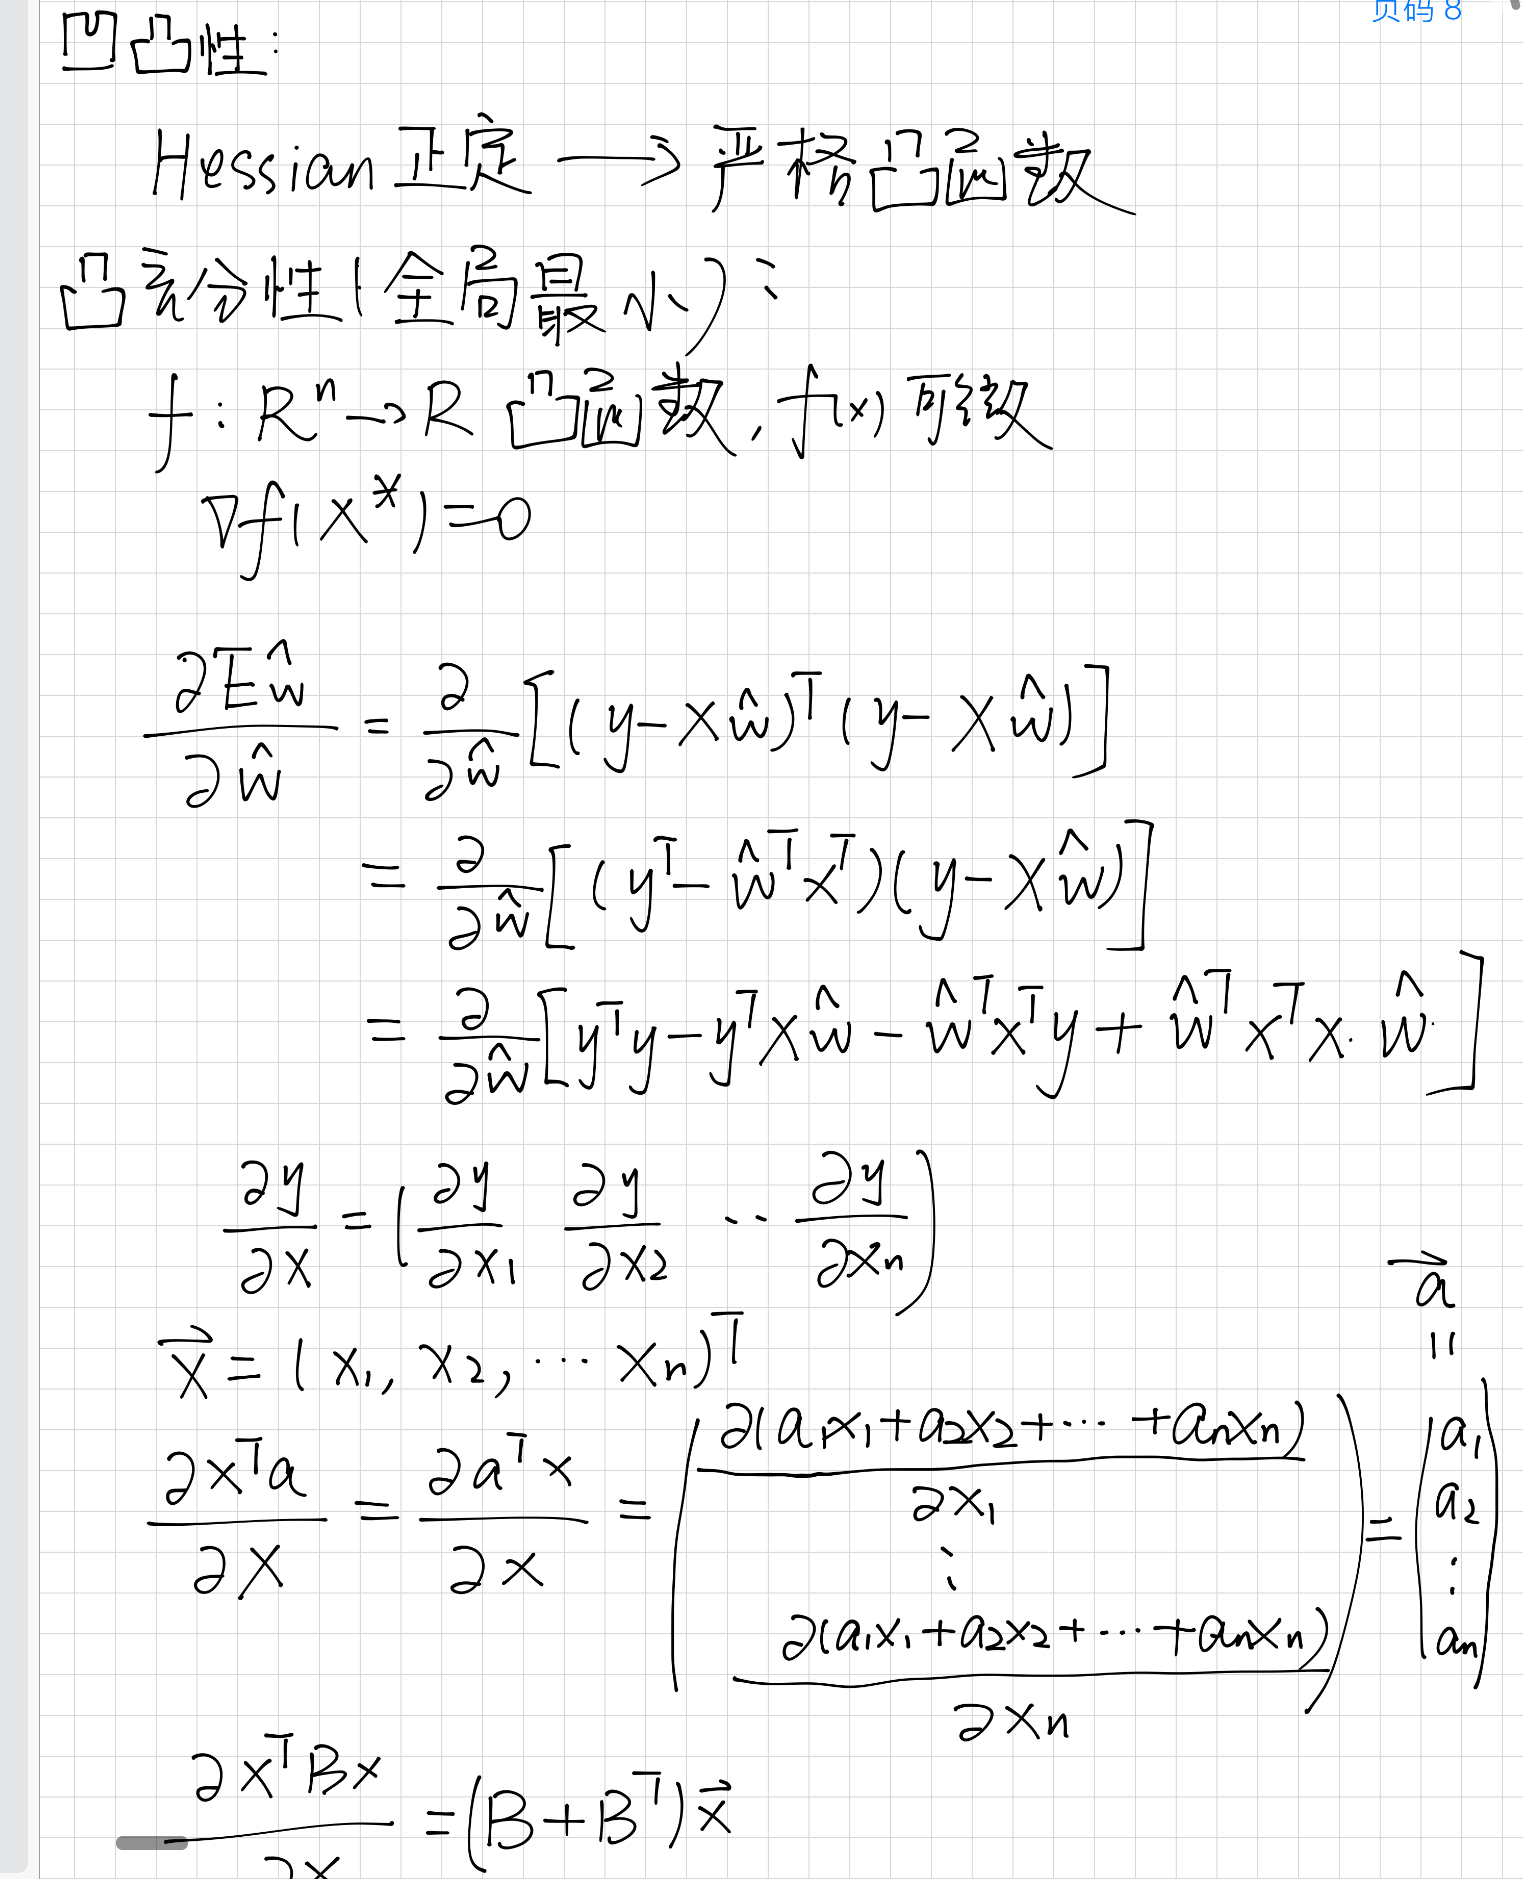 页码 8
凹凸性:
Hessian 正定 → 严格凸函数
凸充分性(全局最小):
f: Rⁿ → R 凸函数, f(x) 可微
∇f(x*)=0
∂Eŵ/∂ŵ = ∂/∂ŵ [(y-Xŵ)ᵀ(y-Xŵ)]
= ∂/∂ŵ [(yᵀ-ŵᵀxᵀ)(y-Xŵ)]
= ∂/∂ŵ [yᵀy-yᵀXŵ-ŵᵀxᵀy+ŵᵀxᵀx·ŵ]
∂y/∂x = (∂y/∂x₁ ∂y/∂x₂ ·· ∂y/∂xₙ)
x⃗ = (x₁, x₂, ⋯ xₙ)ᵀ
∂xᵀa/∂x = ∂aᵀx/∂x = (∂(a₁x₁+a₂x₂+⋯+aₙxₙ)/∂x₁ ⋮ ∂(a₁x₁+a₂x₂+⋯+aₙxₙ)/∂xₙ) = (a₁ a₂ ⋮ aₙ) = a⃗
∂xᵀBx/∂x = (B+Bᵀ)x⃗